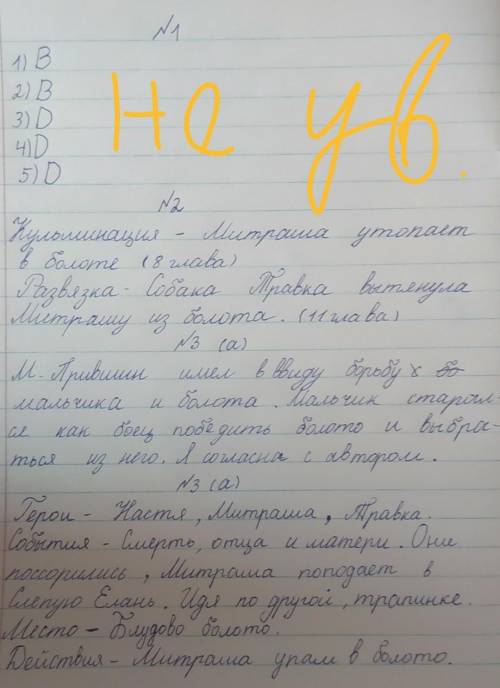 №1
1) В
2) В
3) D
4) D
5) D
Не ув.
№2
Кульминация - Митраша утопает
в болоте (8 глава)
Развязка - Собака Травка вытянула
Митрашу из болота. (11 глава)
№3 (а)
М. Пришвин имел в ввиду борьбу
мальчика и болота. Мальчик старал-
ся как боец победить болото и выбра-
ться из него. Я согласна с автором.
№3 (а)
Герои - Настя, Митраша, Травка.
События - Смерть, отца и матери. Они
поссорились, Митраша поподает в
Слепую Елань. Идя по другой, трапинке.
Место - Блудово болото.
Действия - Митраша упал в болото.